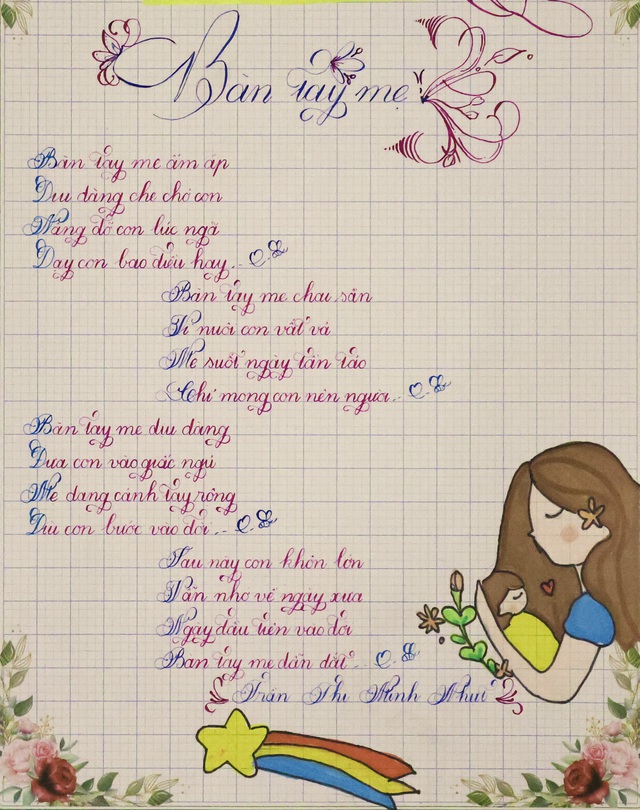 Bàn tay mẹ
Bàn tay mẹ ấm áp
Dịu dàng che chở con
Nâng đỡ con lúc ngã
Dạy con bao điều hay...
Bàn tay mẹ chai sần
Vì nuôi con vất vả
Mẹ suốt ngày tần tảo
Chỉ mong con nên người...
Bàn tay mẹ dịu dàng
Đưa con vào giấc ngủ
Mẹ dang cánh tay rộng
Dìu con bước vào đời...
Sau này con khôn lớn
Vẫn nhớ về ngày xưa
Ngày đầu tiên vào đời
Bàn tay mẹ dẫn dắt...
Trần Thị Minh Như